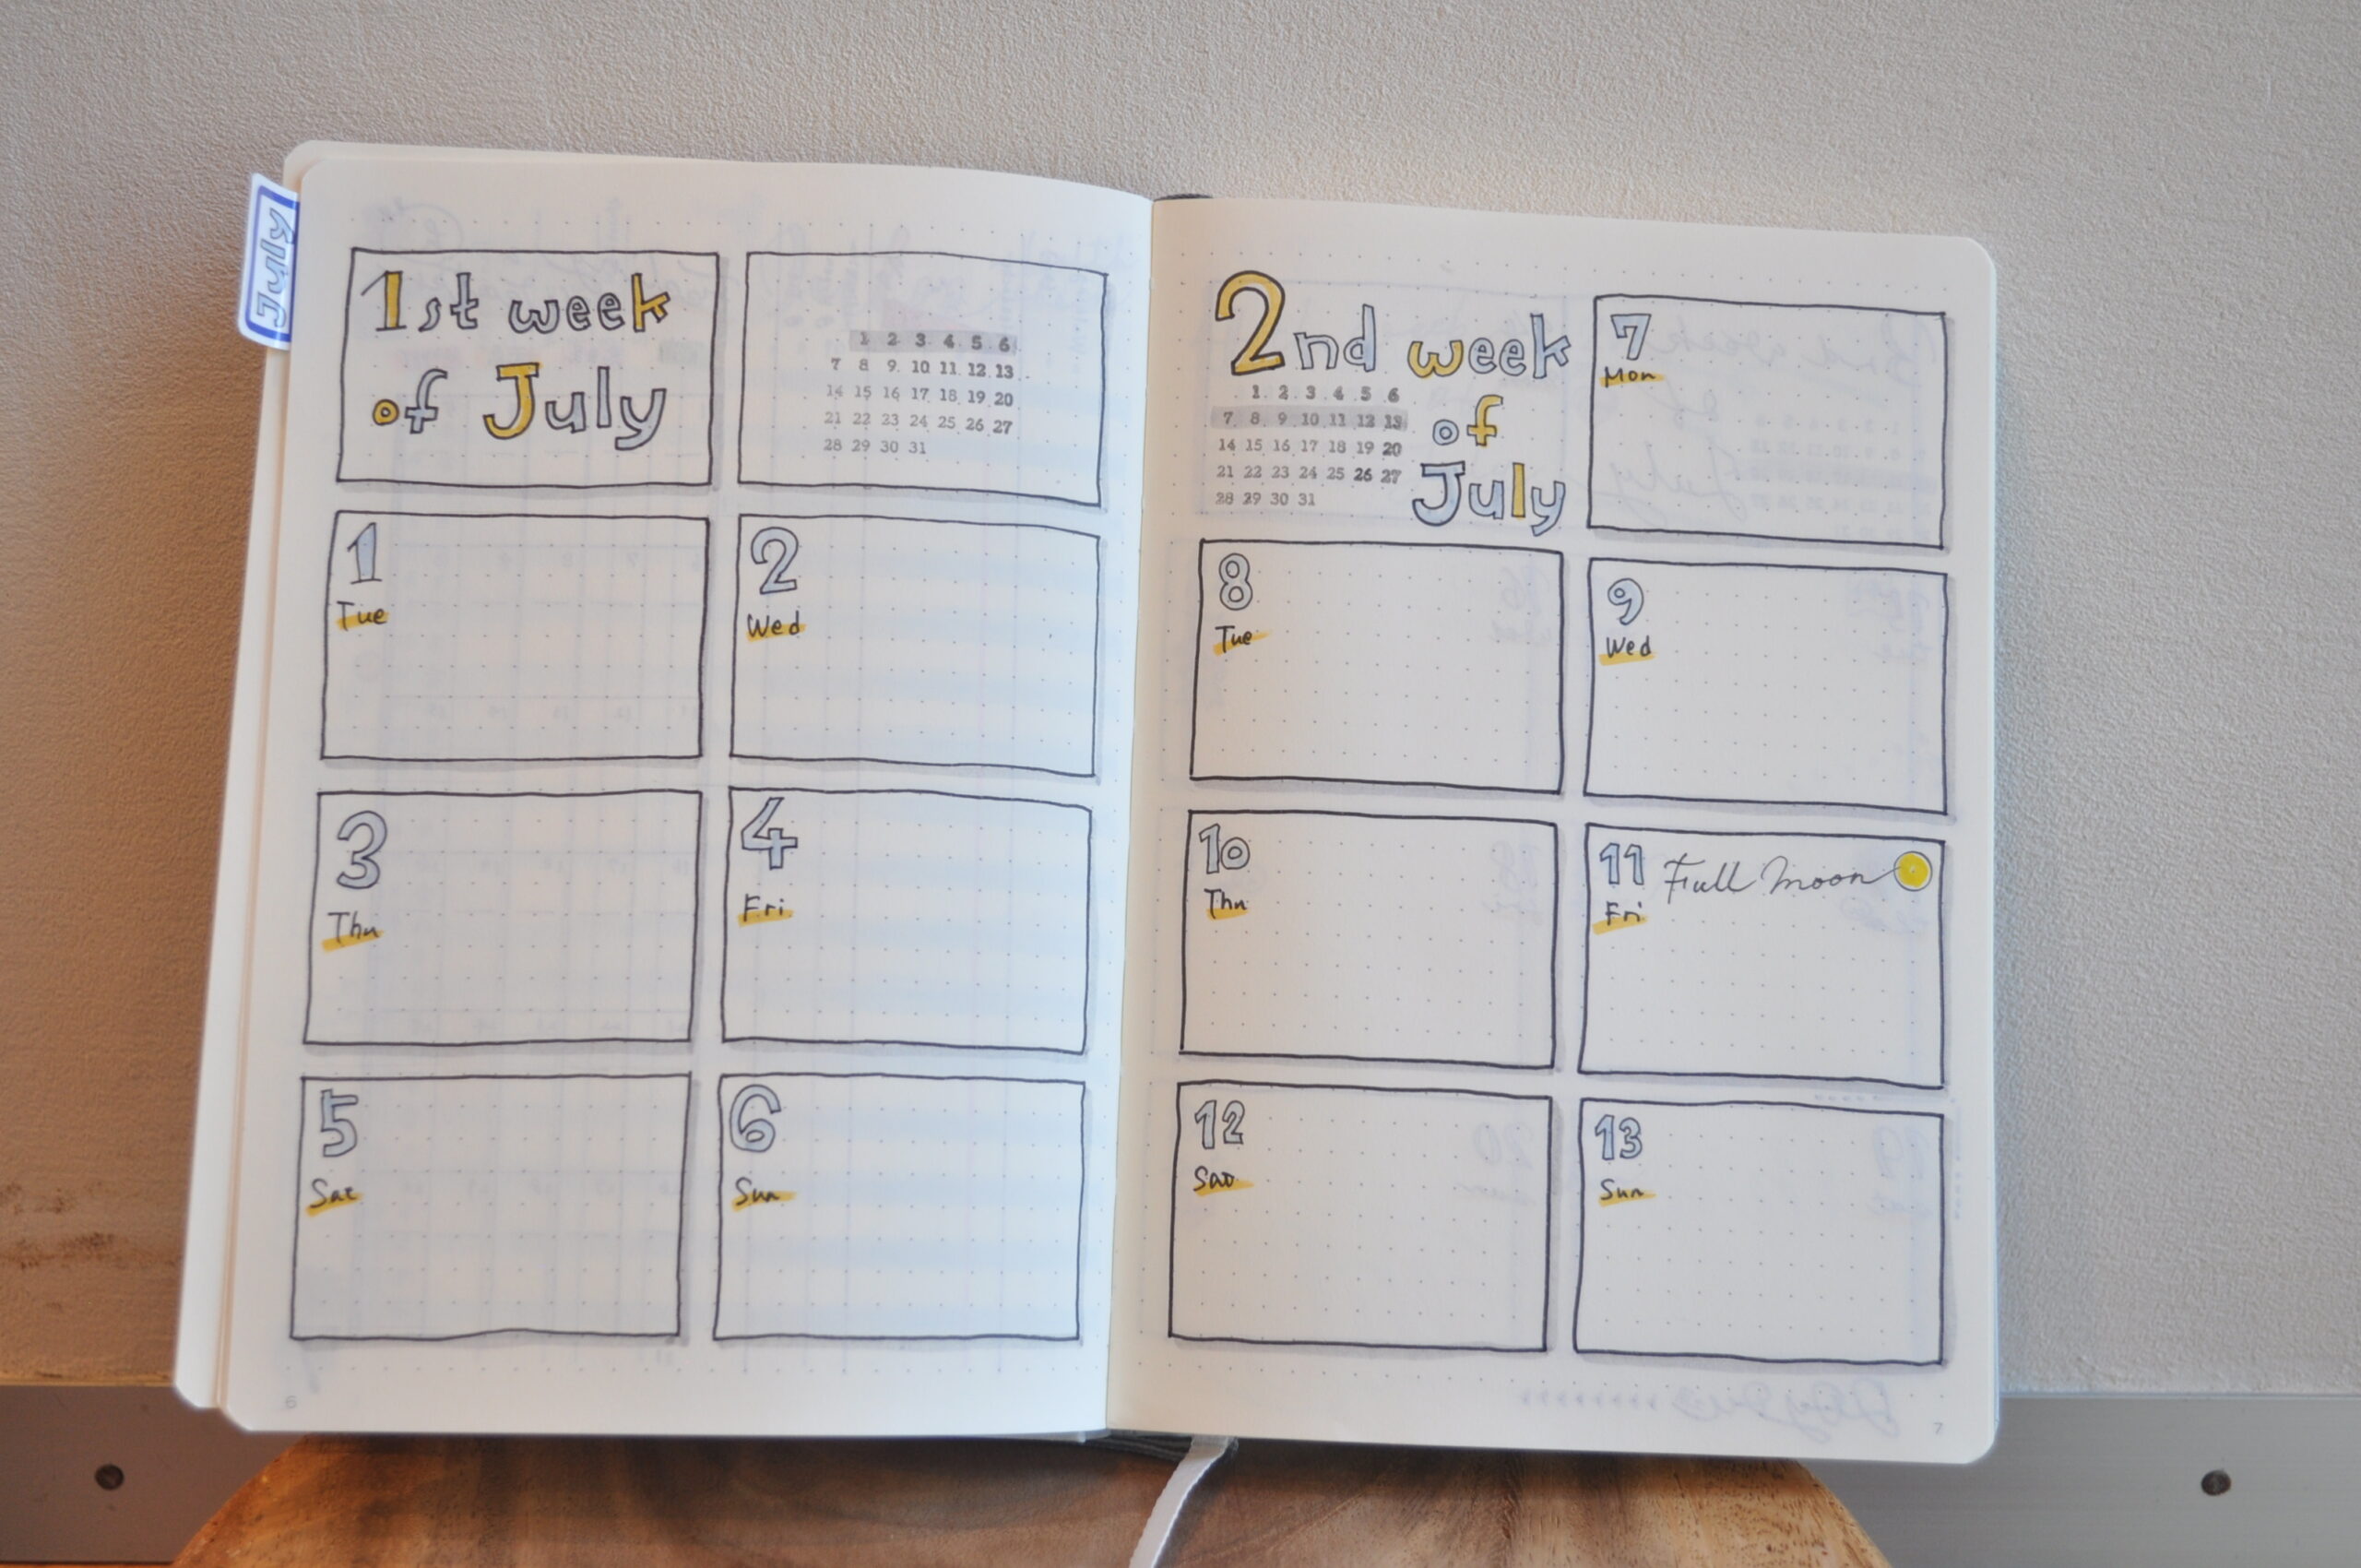 July
1st week
of July
1 2 3 4 5 6
7 8 9 10 11 12 13
14 15 16 17 18 19 20
21 22 23 24 25 26 27
28 29 30 31
1
Tue
2
Wed
3
Thu
4
Fri
5
Sat
6
Sun
6
2nd week
of
July
1 2 3 4 5 6
7 8 9 10 11 12 13
14 15 16 17 18 19 20
21 22 23 24 25 26 27
28 29 30 31
7
Mon
8
Tue
9
Wed
10
Thu
11 Full Moon
Fri
12
Sat
13
Sun
7